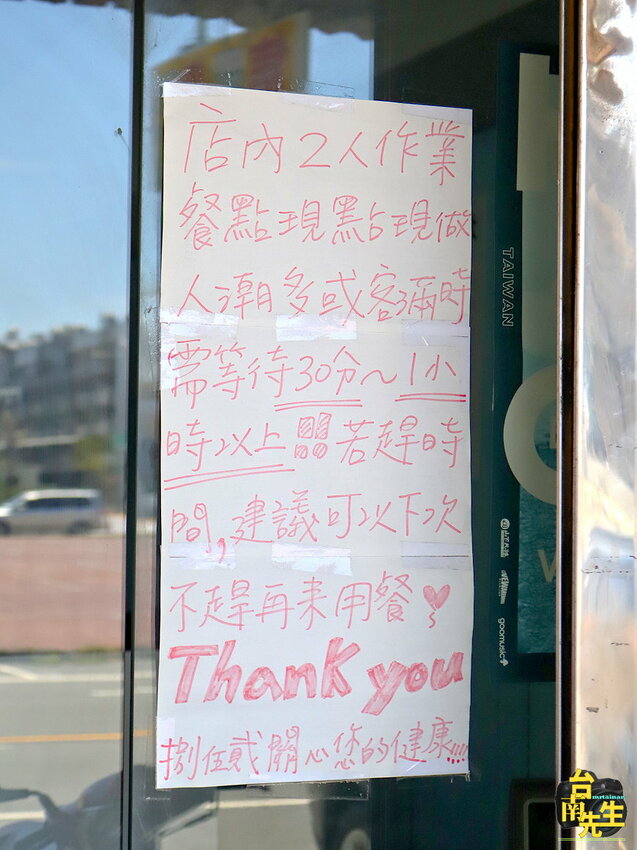 店內2人作業
餐點現點現做
人潮多或客滿時
需等待30分～1小
時以上!!若趕時
間,建議可以下次
不趕再來用餐♥
Thank you
捌伍貳關心您的健康!!!!
TAIWAN
goomusic
台南先生
mrtainan